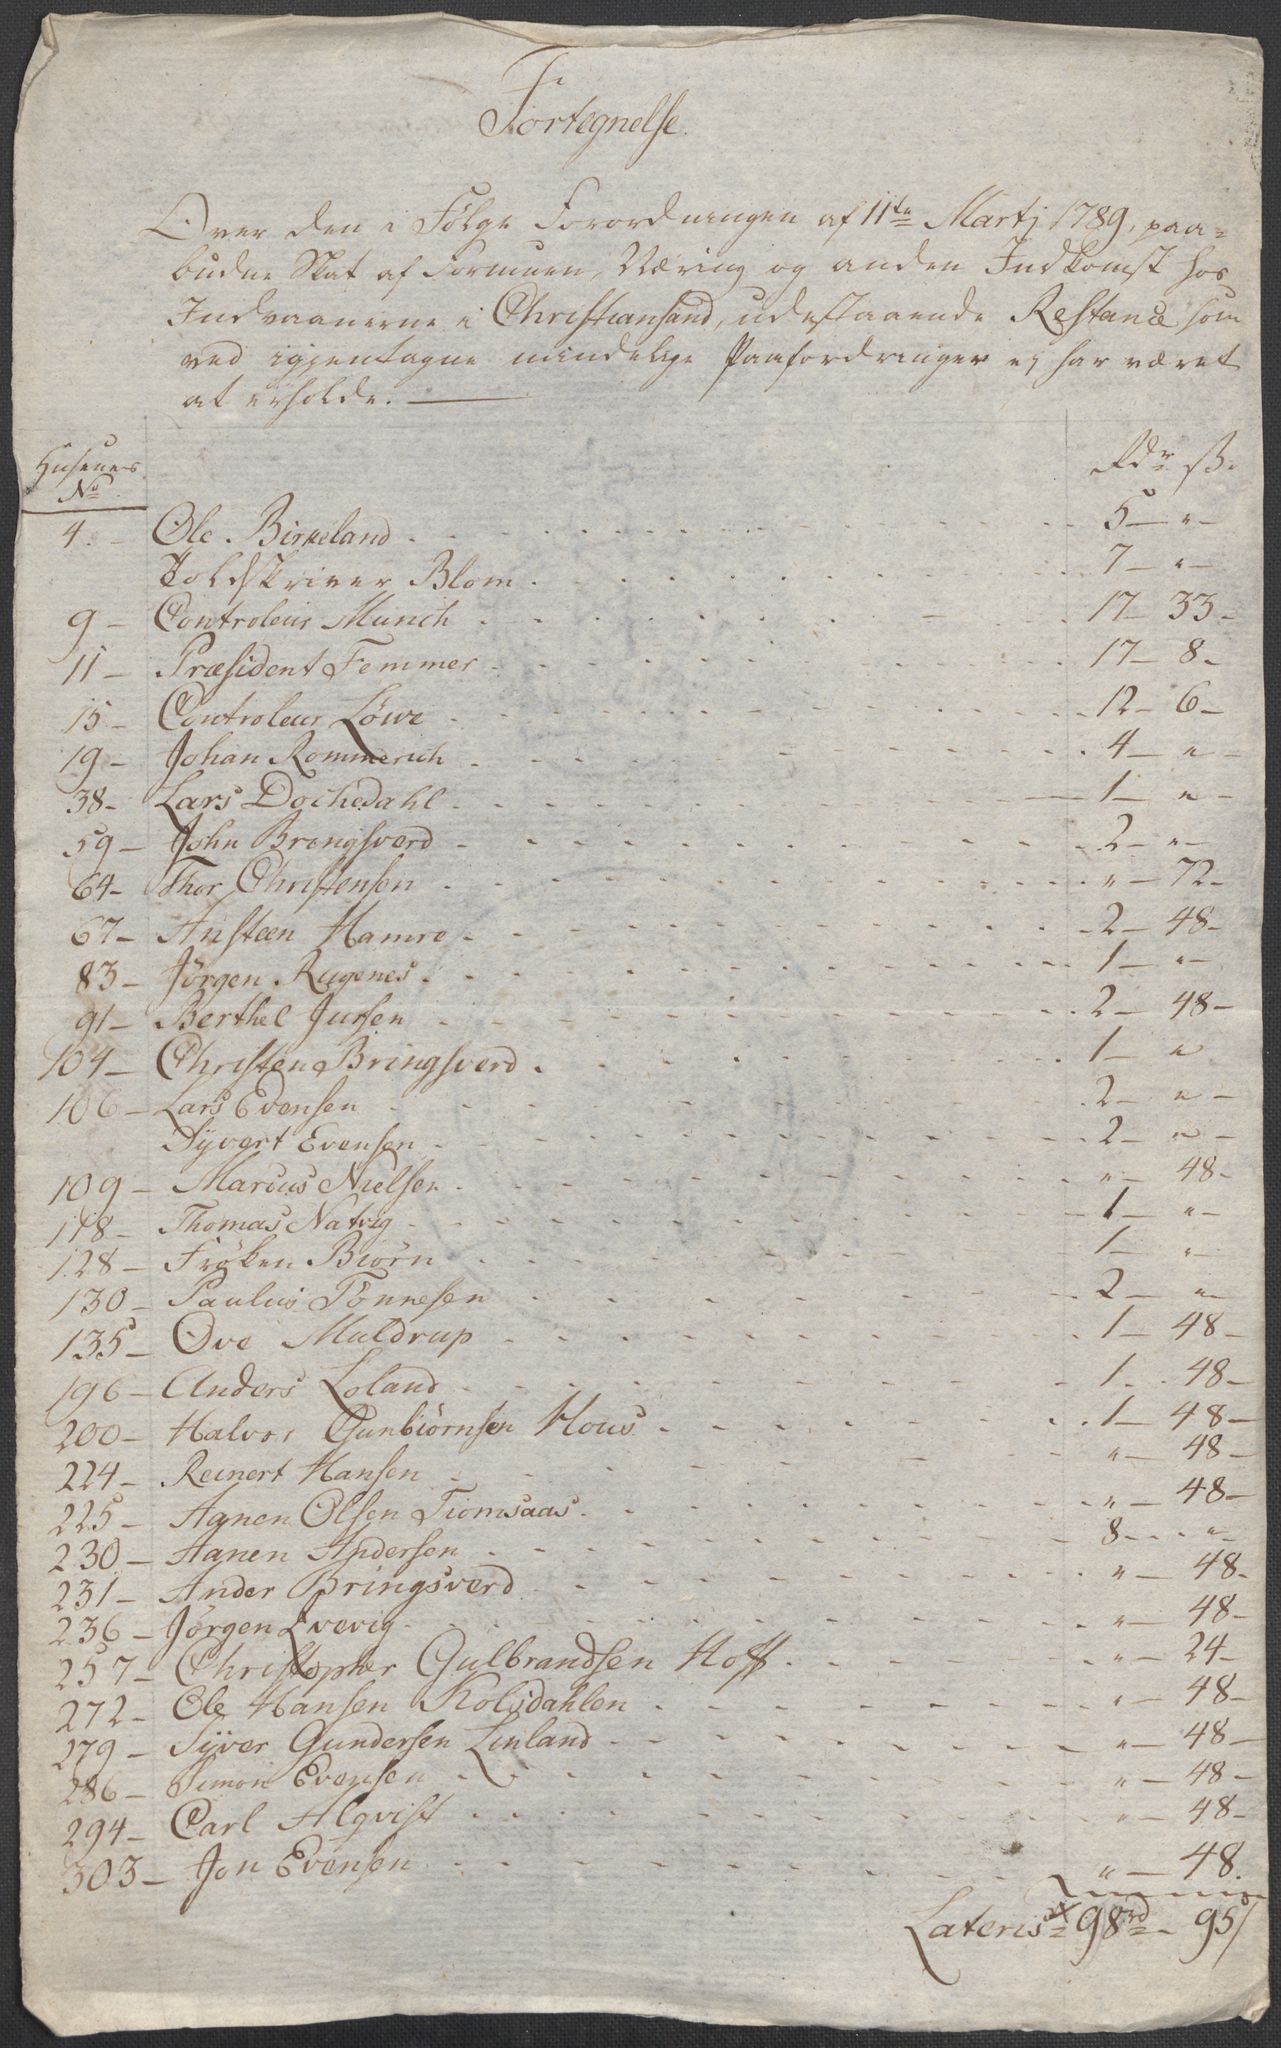 Fortegnelse
Over den i Følge Forordningen af 11te Martj 1789, paa=
budne Skat af Formuen, Næring og anden Indkomst hos
Indvaanerne i Christiansand, udestaaende Restance som
ved igjentagne mindelige Paafordringer ej har været
at erholde.
Husenes
No
Rdr ß.
4. - Ole Birkeland 5 - " -
Toldskriver Blom 7 - " -
9 - Controleur Munch 17 - 33 -
11 - Præsident Femmer 17 - 8 -
15 - Controleur Löwe 12 - 6 -
19 - Johan Rommerich 4 - " -
38 - Lars Dochedahl 1 - " -
59 - John Bringsverd 2 - " -
64 - Thor Christensen " - 72 -
67 - Austeen Hamre 2 - 48 -
83 - Jørgen Rugenes 1 - " -
91 - Berthel Jursen 2 - 48 -
104 - Christen Bringsverd 1 - "
106 - Lars Evensen 2 - " -
Syvert Evensen 2 - " -
109 - Marcus Nielsen " - 48 -
118 - Thomas Natvig 1 - " -
128 - Frøken Biørn 1 - " -
130 - Paulus Tønnesen 2 - " -
135 - Ove Muldrup 1 - 48 -
196 - Anders Loland 1 - 48 -
200 - Halvor Gunbiørnsen Hous 1 - 48 -
224 - Reinert Hansen " - 48 -
225 - Aanen Olsen Tiomsaas " - 48 -
230 - Aanen Andersen 8 - " -
231 - Ander Bringsverd " - 48 -
236 - Jørgen Qvevig " - 48 -
257 - Christopher Gulbrandsen Hoff " - 24 -
272 - Ole Hansen Kolsdahlen " - 48 -
279 - Syver Gundersen Linland " - 48 -
286 - Simon Evensen " - 48 -
294 - Carl Alqvist " - 48 -
303 - Jon Evensen " - 48.
Lateris 98rd - 95/